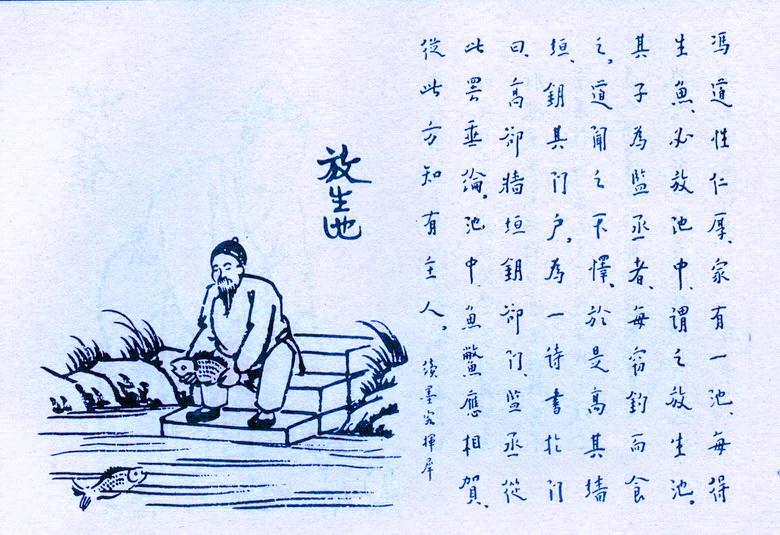 馮道性仁厚、家有一池、每得
生魚、必放池中、謂之放生池。
其子為監丞者、每窃釣而食
之。道聞之不懌、於是高其墙
垣、鈅其门户、為一诗書於门
曰、高却墙垣鈅却门、监丞從
此罢垂綸。池中魚鱉應相賀、
從此方知有主人。續墨客揮犀
放生池